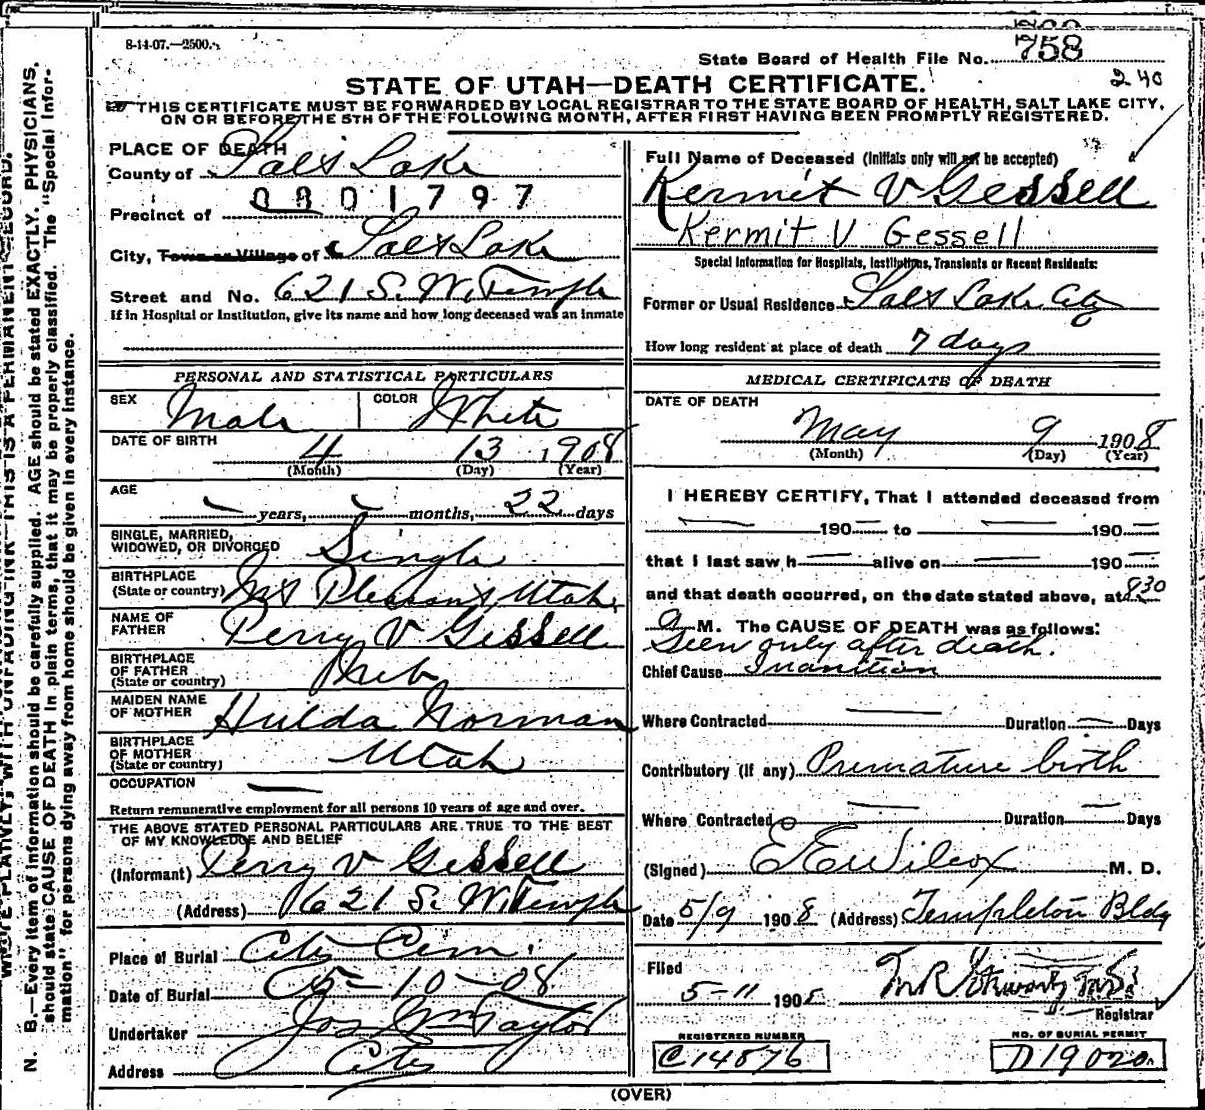 8-14-07.—2500.
State Board of Health File No. 758
240
STATE OF UTAH—DEATH CERTIFICATE.
THIS CERTIFICATE MUST BE FORWARDED BY LOCAL REGISTRAR TO THE STATE BOARD OF HEALTH, SALT LAKE CITY,
ON OR BEFORE THE 5TH OF THE FOLLOWING MONTH, AFTER FIRST HAVING BEEN PROMPTLY REGISTERED.
PLACE OF DEATH
County of Salt Lake
0801797
Precinct of
City, Town or Village of Salt Lake
Street and No. 621 S. W. Temple
If in Hospital or Institution, give its name and how long deceased was an inmate
PERSONAL AND STATISTICAL PARTICULARS
SEX Male COLOR White
DATE OF BIRTH 4 13 1908
(Month) (Day) (Year)
AGE
— years, — months, 22 days
SINGLE, MARRIED,
WIDOWED, OR DIVORCED Single
BIRTHPLACE
(State or country) Mt Pleasant Utah
NAME OF
FATHER Perry V Gessell
BIRTHPLACE
OF FATHER
(State or country) Neb
MAIDEN NAME
OF MOTHER Hulda Norman
BIRTHPLACE
OF MOTHER
(State or country) Utah
OCCUPATION —
Return remunerative employment for all persons 10 years of age and over.
THE ABOVE STATED PERSONAL PARTICULARS ARE TRUE TO THE BEST
OF MY KNOWLEDGE AND BELIEF
(Informant) Perry V Gessell
(Address) 621 S. W. Temple
Place of Burial City Cem.
Date of Burial 5-10-08
Undertaker Jos Wm Taylor
Address City
Full Name of Deceased (Initials only will not be accepted)
Kermit V Gessell
Kermit V Gessell
Special Information for Hospitals, Institutions, Transients or Recent Residents:
Former or Usual Residence Salt Lake City
How long resident at place of death 7 days
MEDICAL CERTIFICATE OF DEATH
DATE OF DEATH
May 9 1908
(Month) (Day) (Year)
I HEREBY CERTIFY, That I attended deceased from
— 190— to — 190—
that I last saw h— alive on — 190—
and that death occurred, on the date stated above, at 8 30
a M. The CAUSE OF DEATH was as follows:
Seen only after death.
Chief Cause Inanition
Where Contracted — Duration — Days
Contributory (if any) Premature birth
Where Contracted — Duration — Days
(Signed) E E Wilcox M. D.
Date 5/9 1908 (Address) Templeton Bldg
Filed
5-11 1908
Registrar
REGISTERED NUMBER
C14876
NO. OF BURIAL PERMIT
D19020
(OVER)
WRITE PLAINLY, WITH UNFADING INK—THIS IS A PERMANENT RECORD.
N. B.—Every item of information should be carefully supplied. AGE should be stated EXACTLY. PHYSICIANS
should state CAUSE OF DEATH in plain terms, that it may be properly classified. The "Special Infor-
mation" for persons dying away from home should be given in every instance.